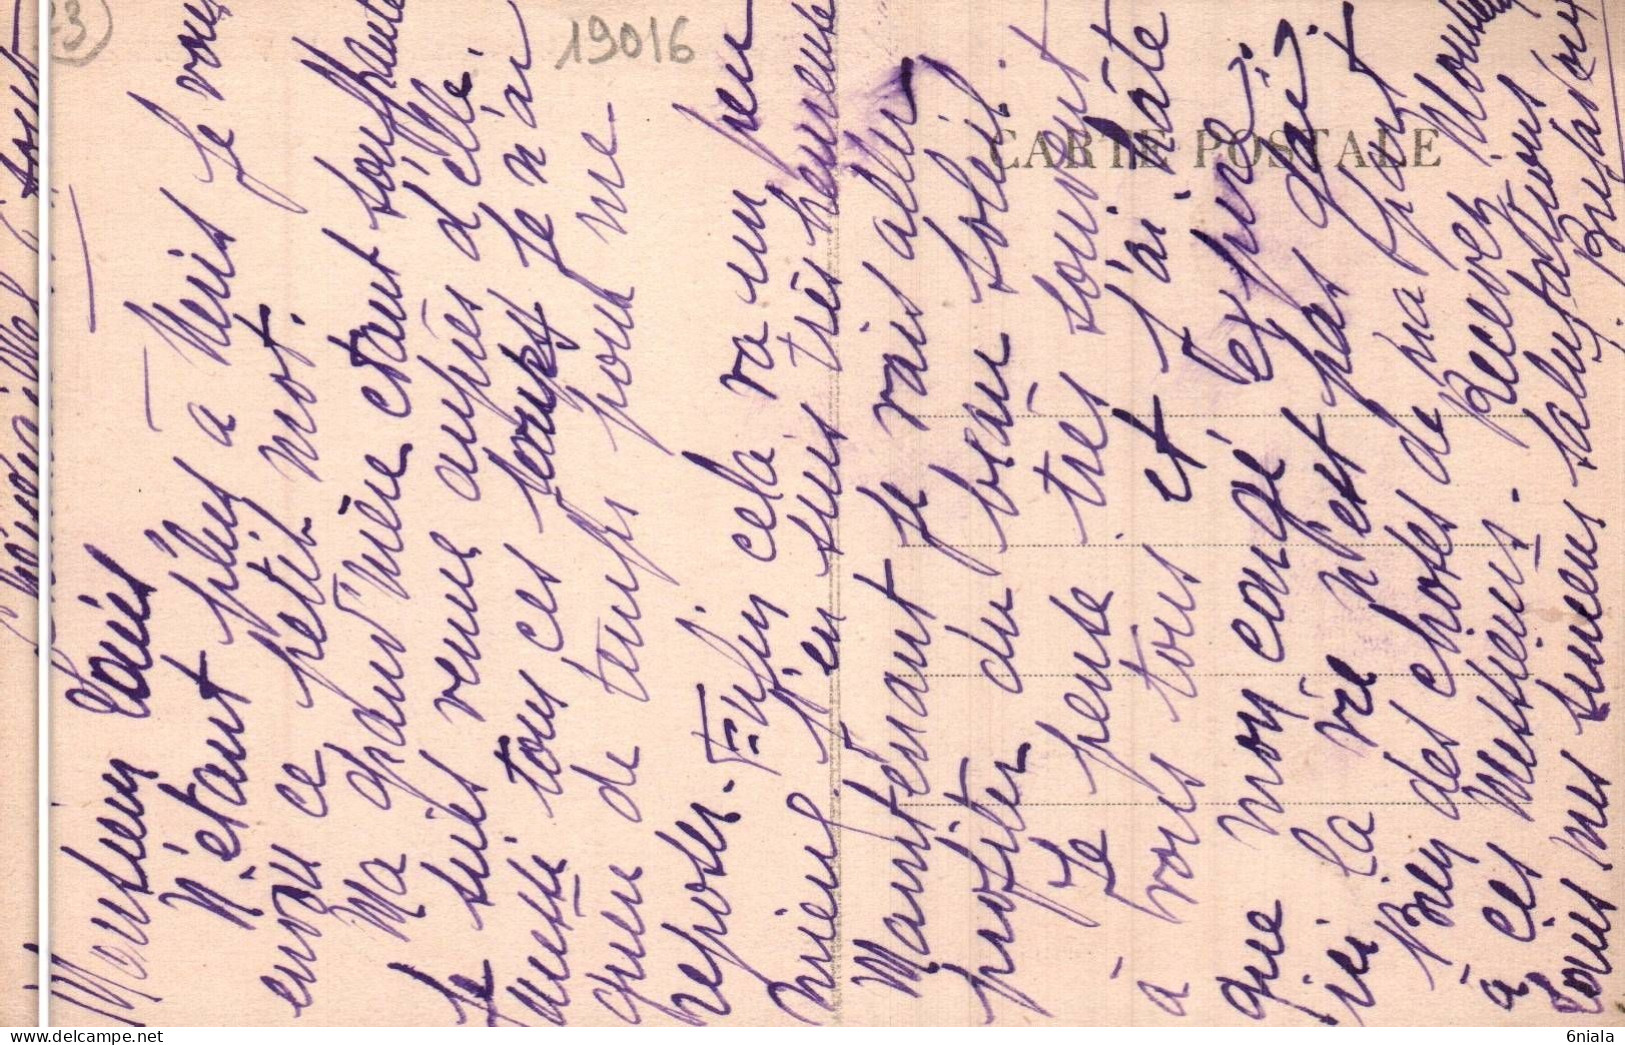 Monsieur Louis
N'étant plus à Menil je vous
envoi ce petit mot.
Ma grand'Mère étant souffrante
je suis venue auprès d'elle.
aussi tous ces temps je n'ai
guère de temps pour me
reposer. Enfin cela va un peu
mieux j'en suis très heureuse
Maintenant je vais aller
profiter du beau soleil.
Je pense très souvent
à vous tous et j'ai hâte
que mon congé expire.
ici la vie n'est pas gai.
Bien des choses de ma part
à ces Messieurs. Recevez Monsieur
Louis mes sincères salutations
CARTE POSTALE
19016
6niala